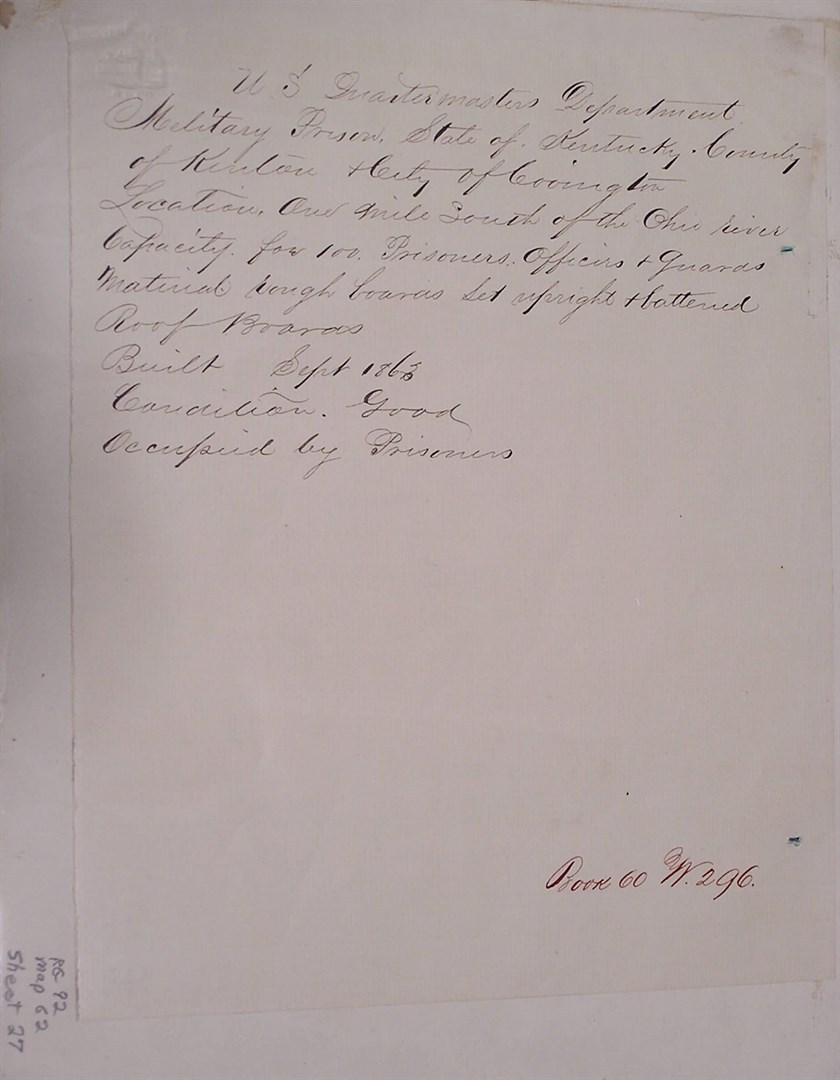 U S Quartermasters Department
Military Prison. State of Kentucky. County
of Kenton & City of Covington
Location. One Mile South of the Ohio river
Capacity. for 100. Prisoners. Officers & Guards
Material rough boards set upright & battened
Roof Boards
Built Sept 1863
Condition. Good
Occupied by Prisoners
Book 60 W. 296.
RG 92
map 62
Sheet 27